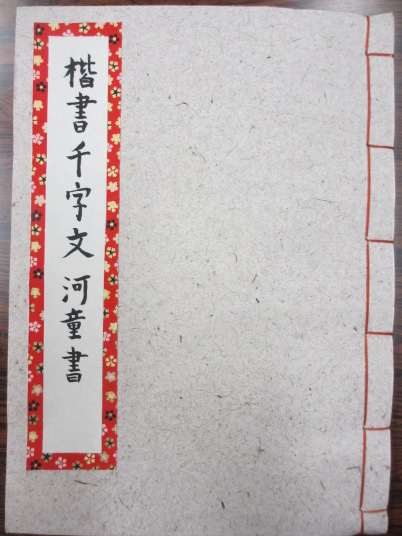 楷書千字文 河童書